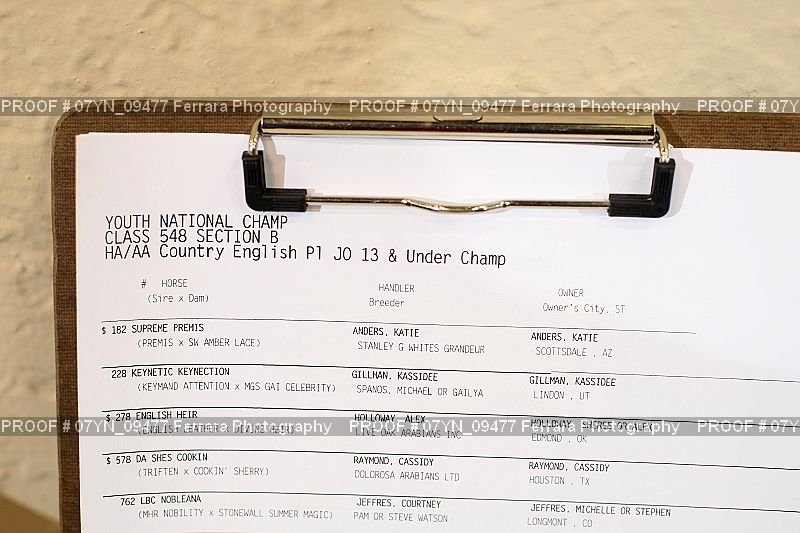 PROOF # 07YN_09477 Ferrara Photography PROOF # 07YN_09477 Ferrara Photography PROOF # 07Y
YOUTH NATIONAL CHAMP
CLASS 548 SECTION B
HA/AA Country English Pl JO 13 & Under Champ
# HORSE HANDLER OWNER
(Sire x Dam) Breeder Owner's City, ST
$ 182 SUPREME PREMIS ANDERS, KATIE ANDERS, KATIE
(PREMIS x SW AMBER LACE) STANLEY G WHITES GRANDEUR SCOTTSDALE , AZ
228 KEYNETIC KEYNECTION GILLMAN, KASSIDEE GILLMAN, KASSIDEE
(KEYMAND ATTENTION x MGS GAI CELEBRITY) SPANOS, MICHAEL OR GAILYA LINDON , UT
$ 278 ENGLISH HEIR HOLLOWAY, ALEX HOLLOWAY, SHEREE OR ALEX
PROOF # 07YN_09477 Ferrara Photography PROOF # 07YN_09477 Ferrara Photography PROOF # 07Y
LIVE OAK ARABIANS INC EDMOND , OK
$ 578 DA SHES COOKIN RAYMOND, CASSIDY RAYMOND, CASSIDY
(TRIFTEN x COOKIN' SHERRY) DOLOROSA ARABIANS LTD HOUSTON , TX
762 LBC NOBLEANA JEFFRES, COURTNEY JEFFRES, MICHELLE OR STEPHEN
(MHR NOBILITY x STONEWALL SUMMER MAGIC) PAM OR STEVE WATSON LONGMONT , CO